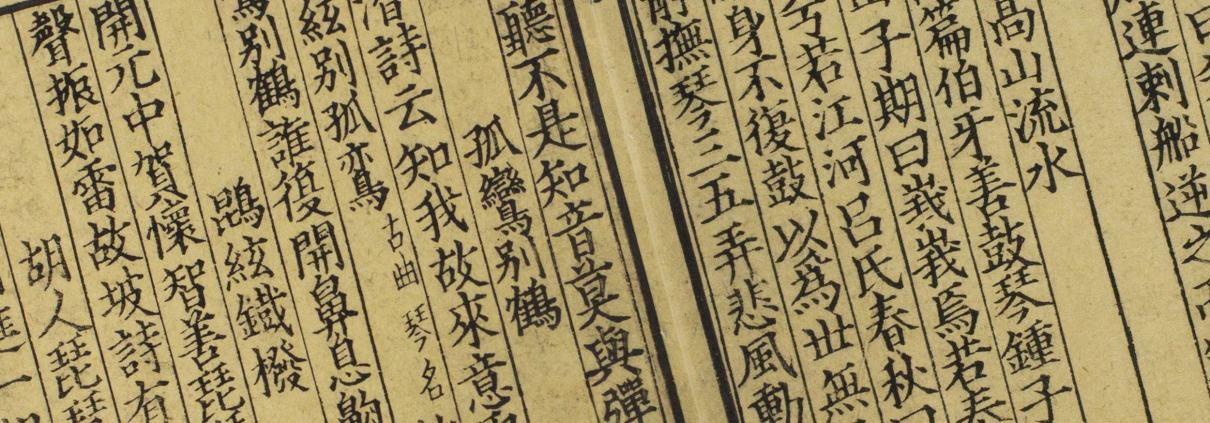 連刺船逆之而
高山流水
篇伯牙善鼓琴鍾子
子期曰峩峩焉若泰
兮若江河呂氏春秋曰
身不復鼓以為世無
撫琴三五弄悲風動
聽不是知音莫與彈
孤鸞別鶴
詩云知我故來意
古曲琴名
絃別孤鸞
別鶴誰復開鼻息齁
鵾絃鐵撥
開元中賀懷智善琵琶
聲振如雷故坡詩有
胡人琵琶